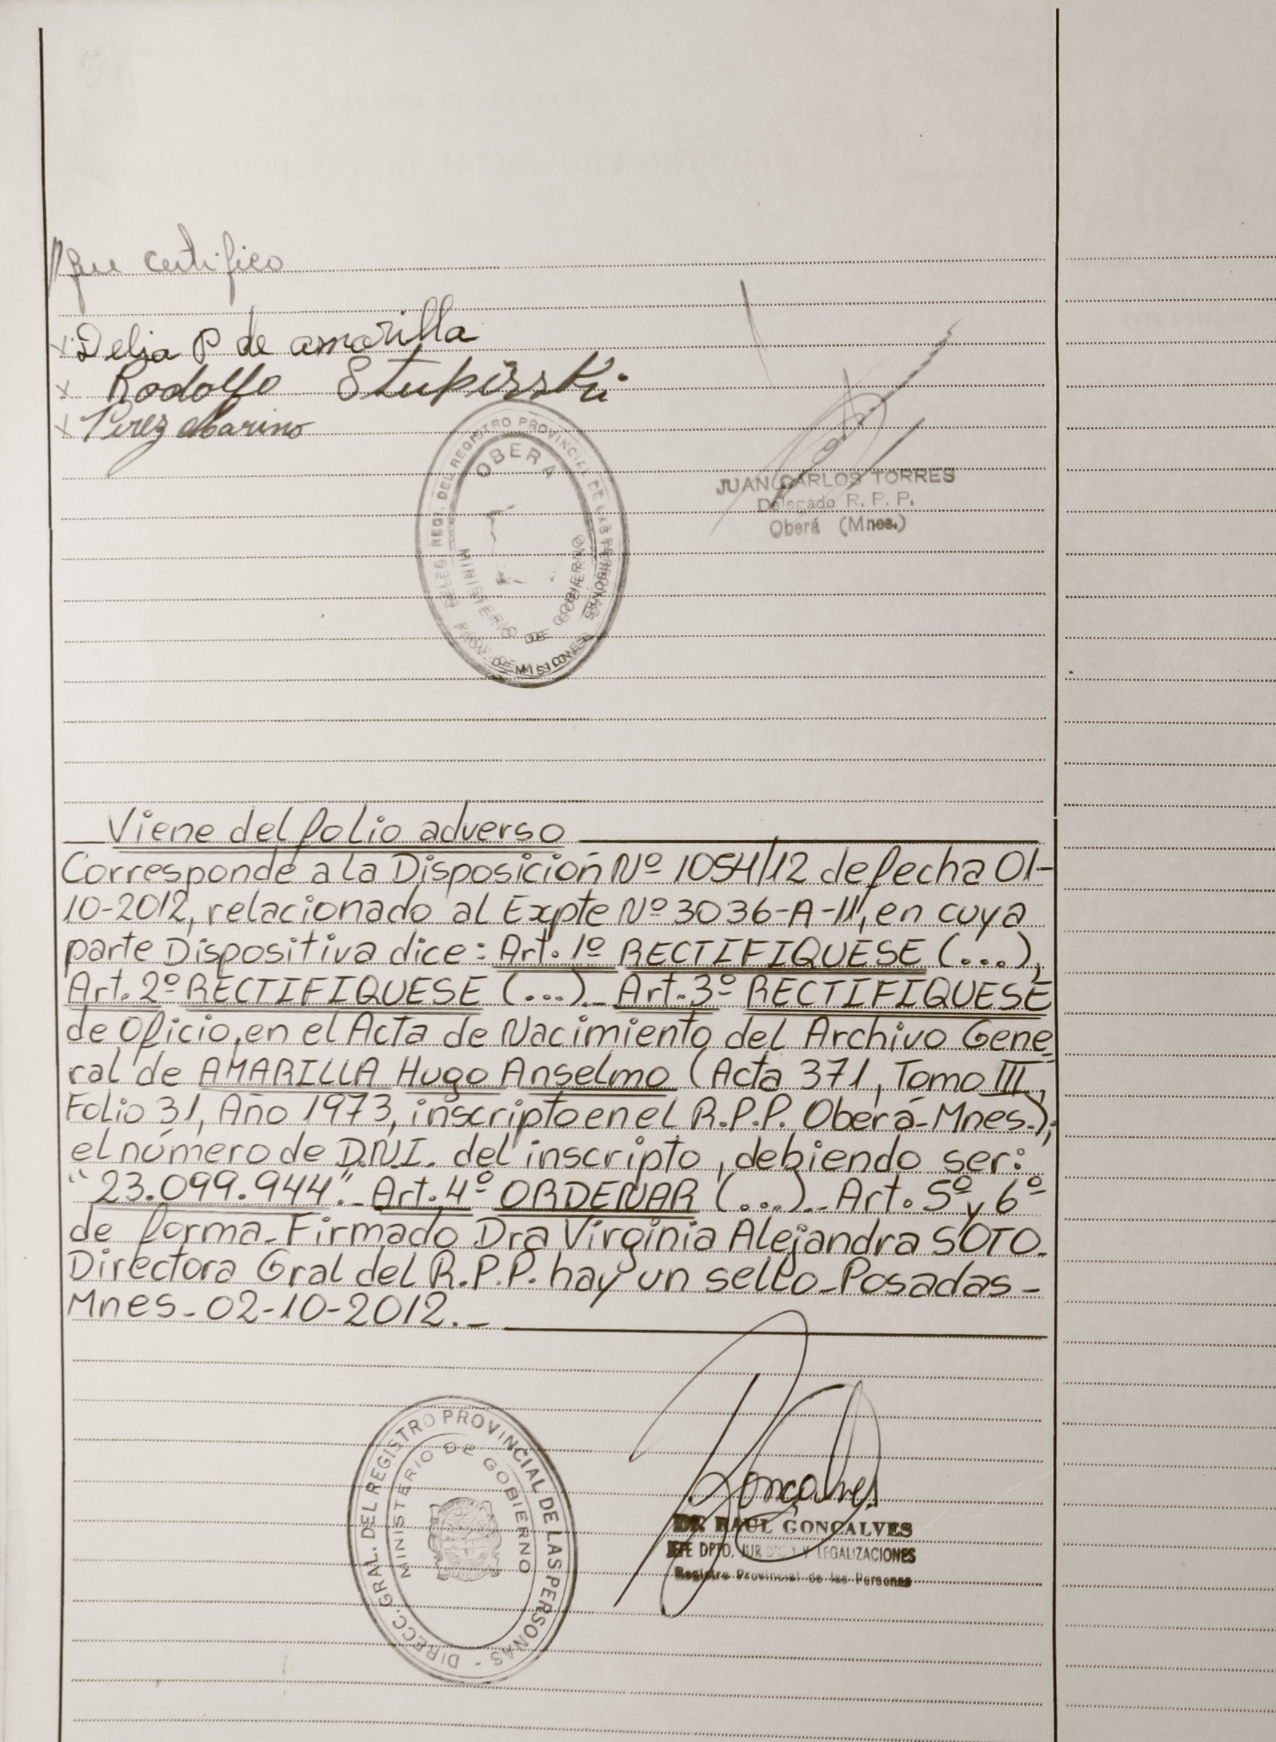 que certifico
x Delia P de amarilla
x Rodolfo Stupiñski
x Perez Marino
DELEG. REG. DEL REGISTRO PROVINCIAL DE LAS PERSONAS
OBERA
MINISTERIO DE GOBIERNO
PROV. DE MISIONES
JUAN CARLOS TORRES
Delegado R. P. P.
Oberá (Mnes.)
Viene del folio adverso
Corresponde a la Disposición Nº 1054/12 de fecha 01-
10-2012, relacionado al Expte Nº 3036-A-11, en cuya
parte Dispositiva dice: Art. 1º RECTIFIQUESE (...),
Art. 2º RECTIFIQUESE (...)_ Art. 3º RECTIFIQUESE
de Oficio, en el Acta de Nacimiento del Archivo Gene
ral de AMARILLA Hugo Anselmo (Acta 371, Tomo III,
Folio 31, Año 1973, inscripto en el R.P.P. Oberá-Mnes.);
el número de D.N.I. del inscripto, debiendo ser:
"23.099.944"._ Art. 4º ORDENAR (...)_ Art. 5º y 6º
de forma_ Firmado Dra Virginia Alejandra SOTO_
Directora Gral del R.P.P. hay un sello_Posadas_
Mnes_02-10-2012._
DIRECC. GRAL. DEL REGISTRO PROVINCIAL DE LAS PERSONAS -
MINISTERIO DE GOBIERNO
Goncalves
DR RAUL GONCALVES
JEFE DPTO. JURIDICO Y LEGALIZACIONES
Registro Provincial de las Personas